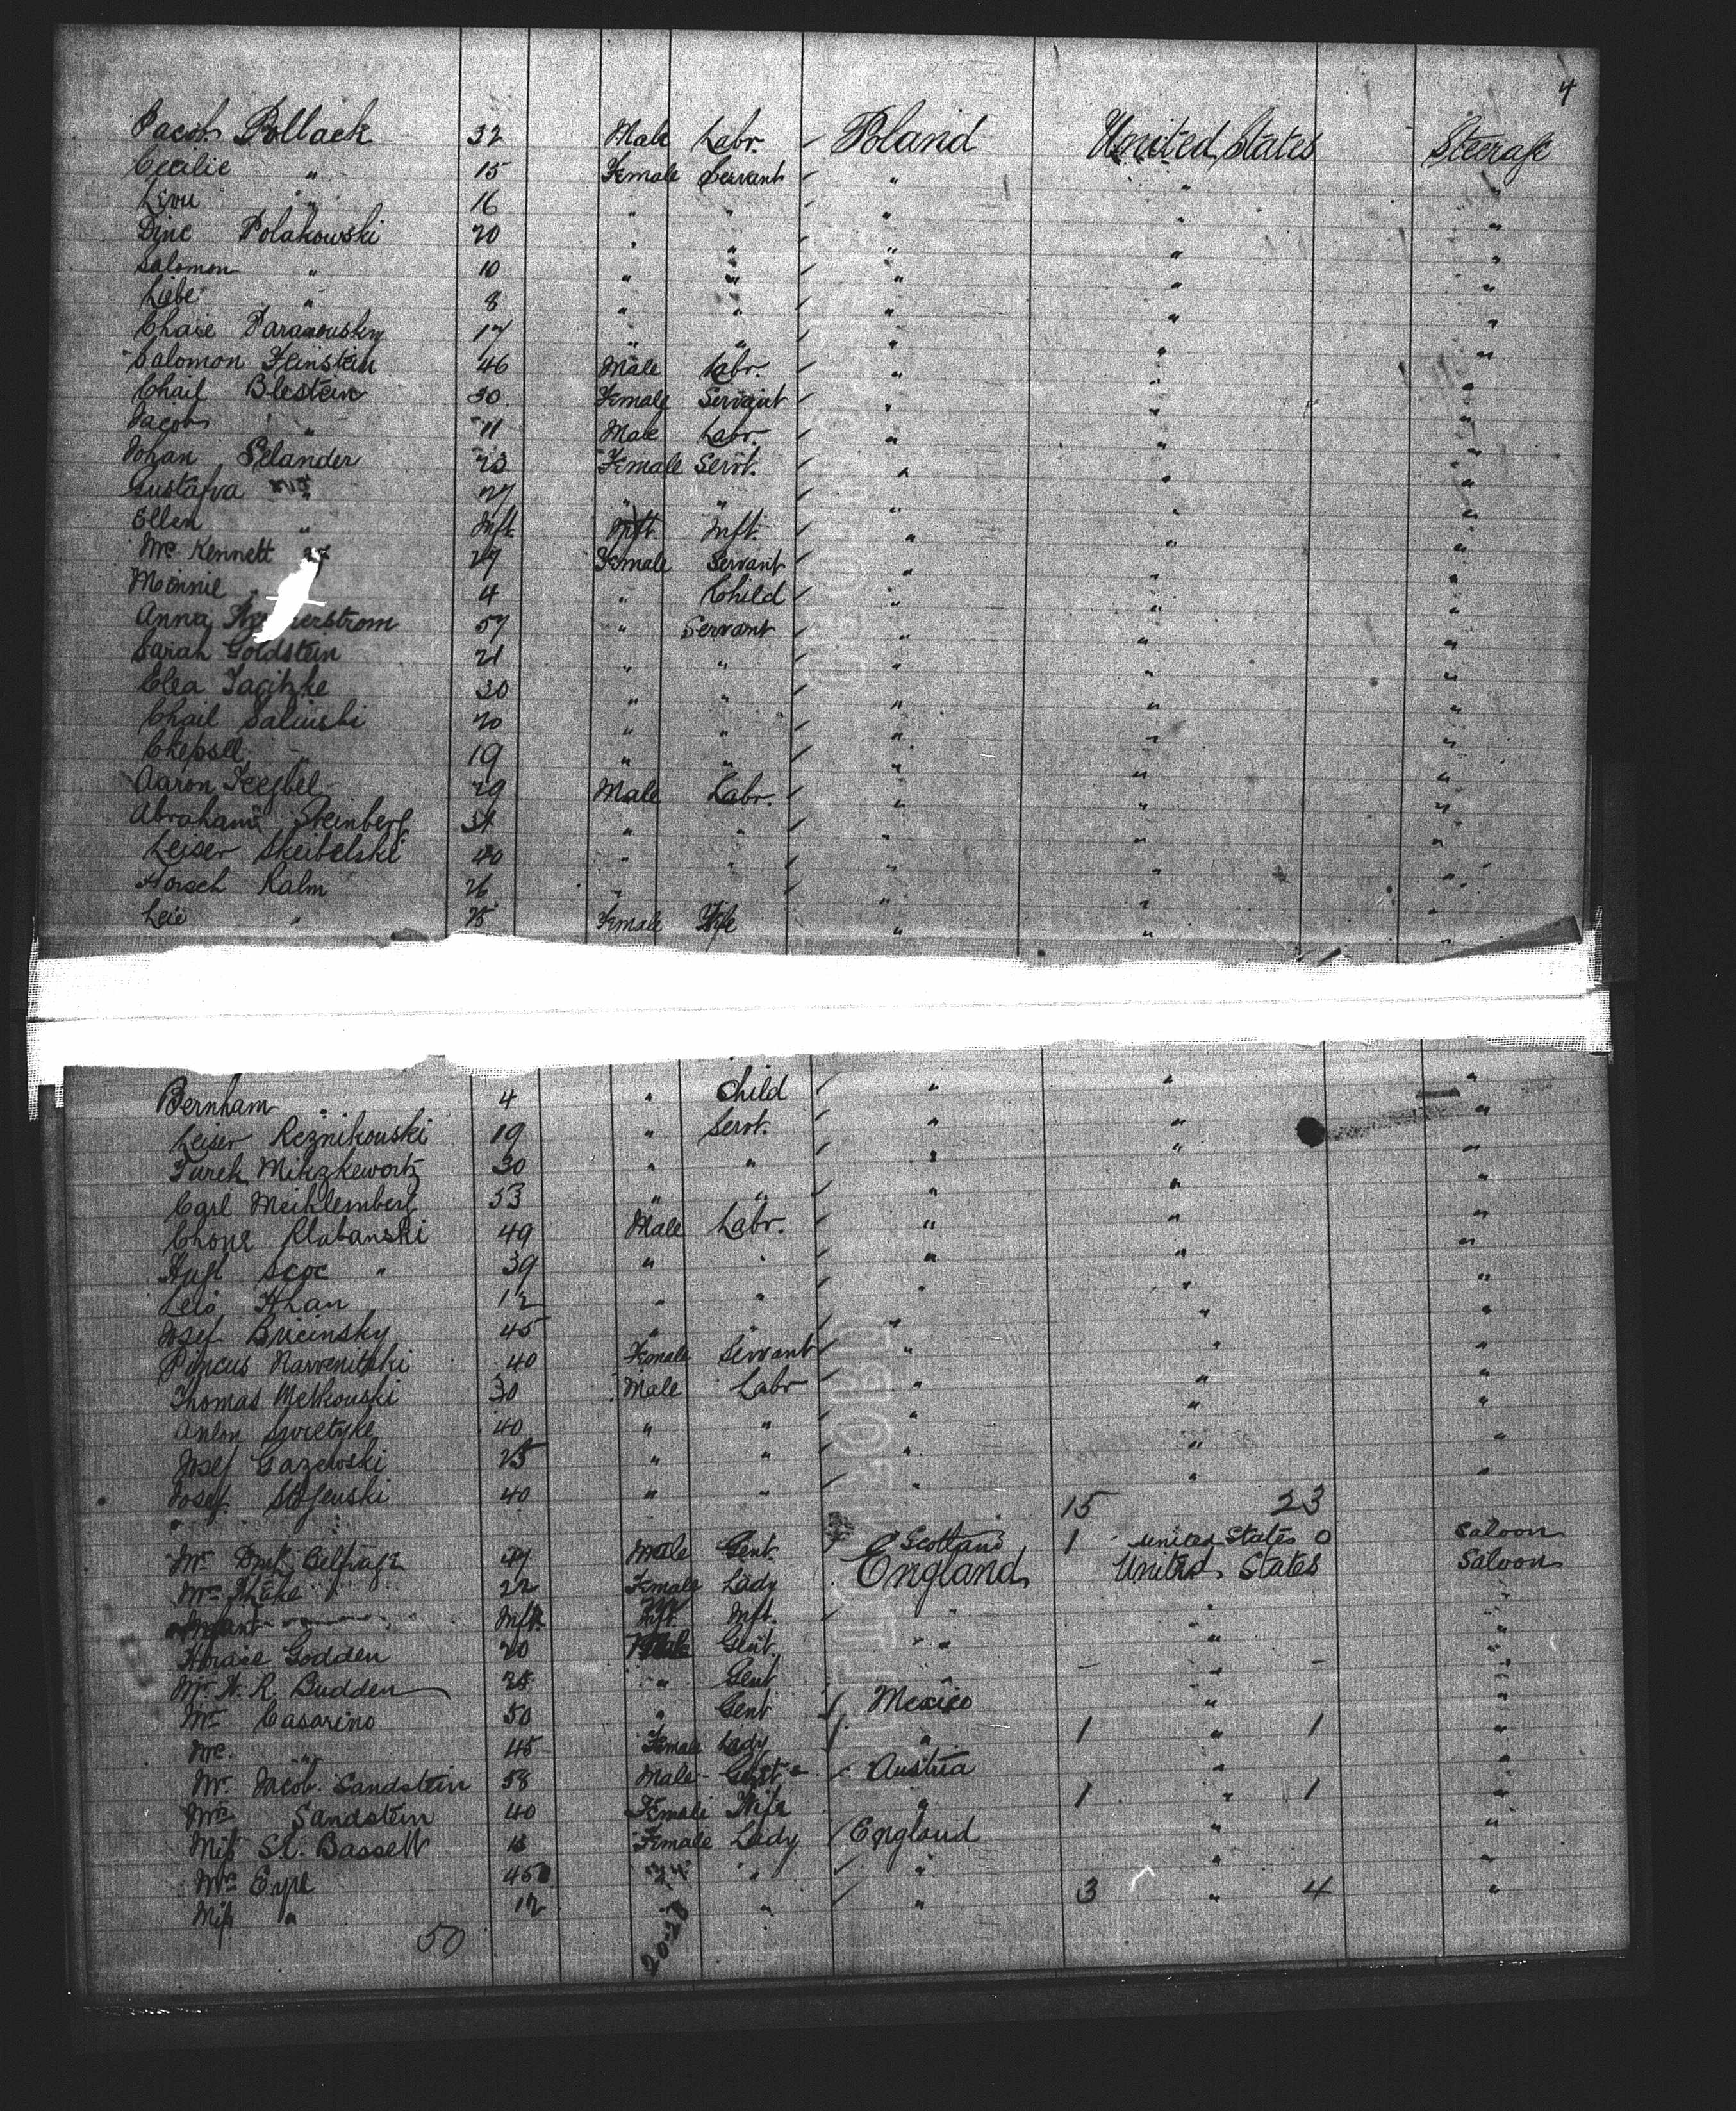 4
Jacob Pollack 32 Male Labr. Poland United States Steerage
Cecilie " 15 Female Servant " " "
Livu " 16 " " " " "
Dine Polakowski 20 " " " " "
Salomon " 10 " " " " "
Liebe " 8 " " " " "
Chaie 17 " " " " "
Salomon Feinstein 46 Male Labr. " " "
Chail Blestein 30 Female Servant " " "
Jacob " 11 Male Labr. " " "
Johan Selander 23 Female Servt. " " "
Gustafva 27 " " " " "
Ellen " Inft. Inft. Inft. " " "
Kennett 27 Female Servant " " "
Minnie 4 " Child " " "
Anna 57 " Servant " " "
Sarah Goldstein 21 " " " " "
Clea 30 " " " " "
Chail Salinski 20 " " " " "
Chepsel " 19 " " " " "
Aaron 29 Male Labr. " " "
Abraham Steinberg " " " " "
Leiser Skeibelski 40 " " " " "
Hersch Kalm 26 " " " "
Leie " 25 Female Wife " " "
Bernham " 4 " Child " " "
Leiser Reznikouski 19 " Servt. " " "
Turek 30 " " " " "
Carl Meiklemberg 53 " " " " "
Chone Klubanski 49 Male Labr. " " "
" 39 " " " " "
Leio Khan 12 " " " " "
Josef Bricinsky 45 " " " " "
Pincus 40 Female Servant " " "
Thomas Metkouski 30 Male Labr " " "
Anton Swietyke 40 " " " " "
Josef Gazewski 25 " " " " "
Josef 40 " " " " "
15 23
Mr. Belfrage 47 Male Gent. Scotland 1 United States 0 Saloon
Mrs 22 Female Lady England United States Saloon
Infant Inft. Inft. Inft. " " "
Horace Godden 20 Male Gent. " " "
Mr. H. R. Budden " Gent " "
Mr. Casarino 50 " Gent Mexico " "
" 45 Female Lady " 1 " 1 "
Mr. Jacob Sandstein 58 Male Gent Austria " "
Mrs Sandstein 40 Female Wife " 1 " 1 "
Miss St. Bassett Female Lady England " "
Mrs Eyre 45 " " " " "
Miss " 12 " " 3 " 4 "
50
20-28